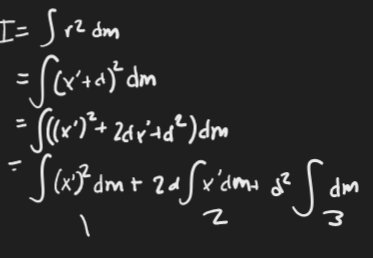 I = ∫ r² dm
= ∫ (x'+d)² dm
= ∫ ((x')² + 2dx' + d²) dm
= ∫ (x')² dm + 2d ∫ x' dm + d² ∫ dm
1 2 3